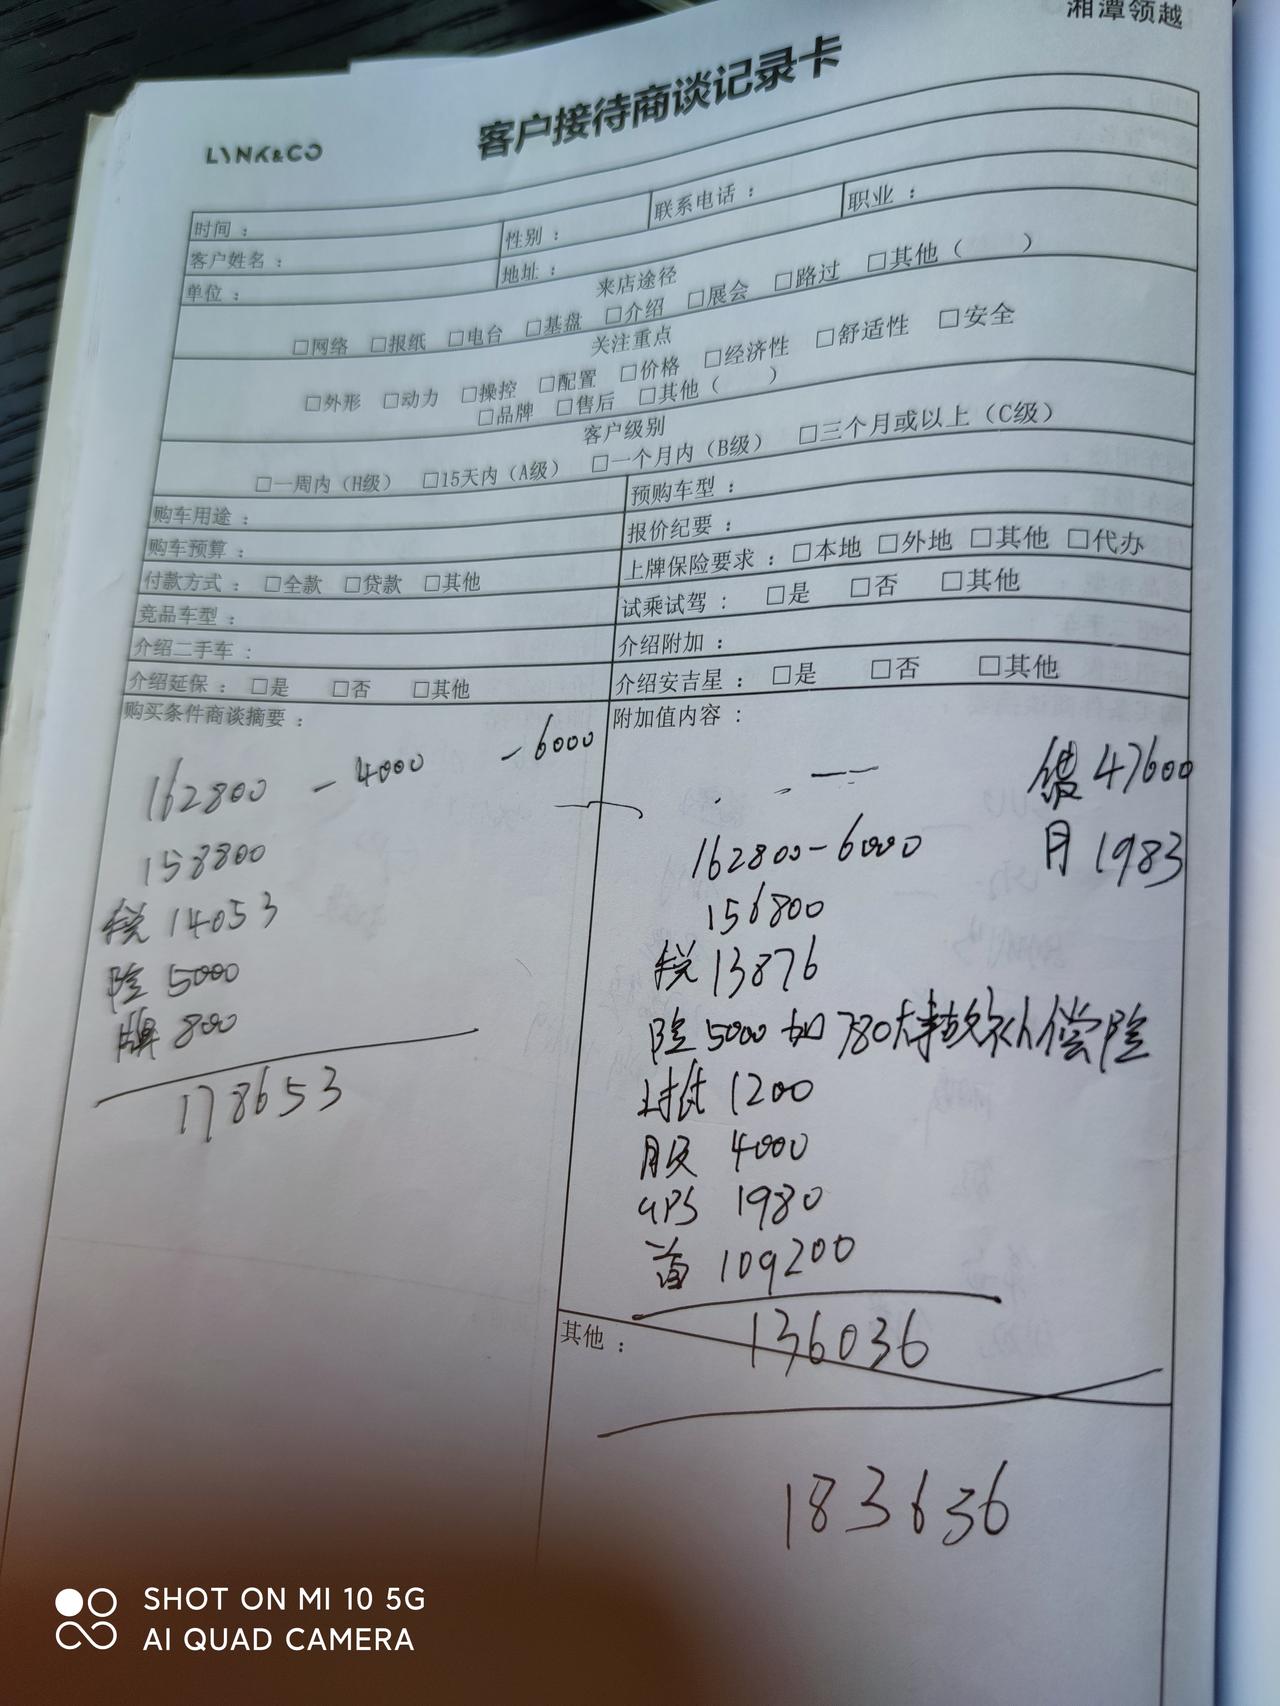 湘潭领越
LYNK&CO
客户接待商谈记录卡
时间：
客户姓名： 性别： 联系电话： 职业：
单位： 地址：
来店途径
□网络 □报纸 □电台 □基盘 □介绍 □展会 □路过 □其他（ ）
关注重点
□外形 □动力 □操控 □配置 □价格 □经济性 □舒适性 □安全
□品牌 □售后 □其他（ ）
客户级别
□一周内（H级） □15天内（A级） □一个月内（B级） □三个月或以上（C级）
购车用途： 预购车型：
购车预算： 报价纪要：
付款方式：□全款 □贷款 □其他 上牌保险要求：□本地 □外地 □其他 □代办
竞品车型： 试乘试驾：□是 □否 □其他
介绍二手车： 介绍附加：
介绍延保：□是 □否 □其他 介绍安吉星：□是 □否 □其他
购买条件商谈摘要：
162800 - 4000 - 6000
158800
税 14053
险 5000
牌 800
178653
附加值内容：
47600
月 1983
162800-6000
156800
税 13876
险 5000 加 780大事故补偿险
1200
服 4000
GPS 1980
首 109200
136036
其他：
183636
SHOT ON MI 10 5G
AI QUAD CAMERA